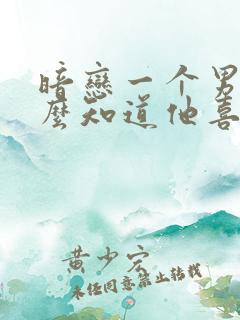 暗戀一个男
麼知道他喜
黄少宏
未经同意禁止转载